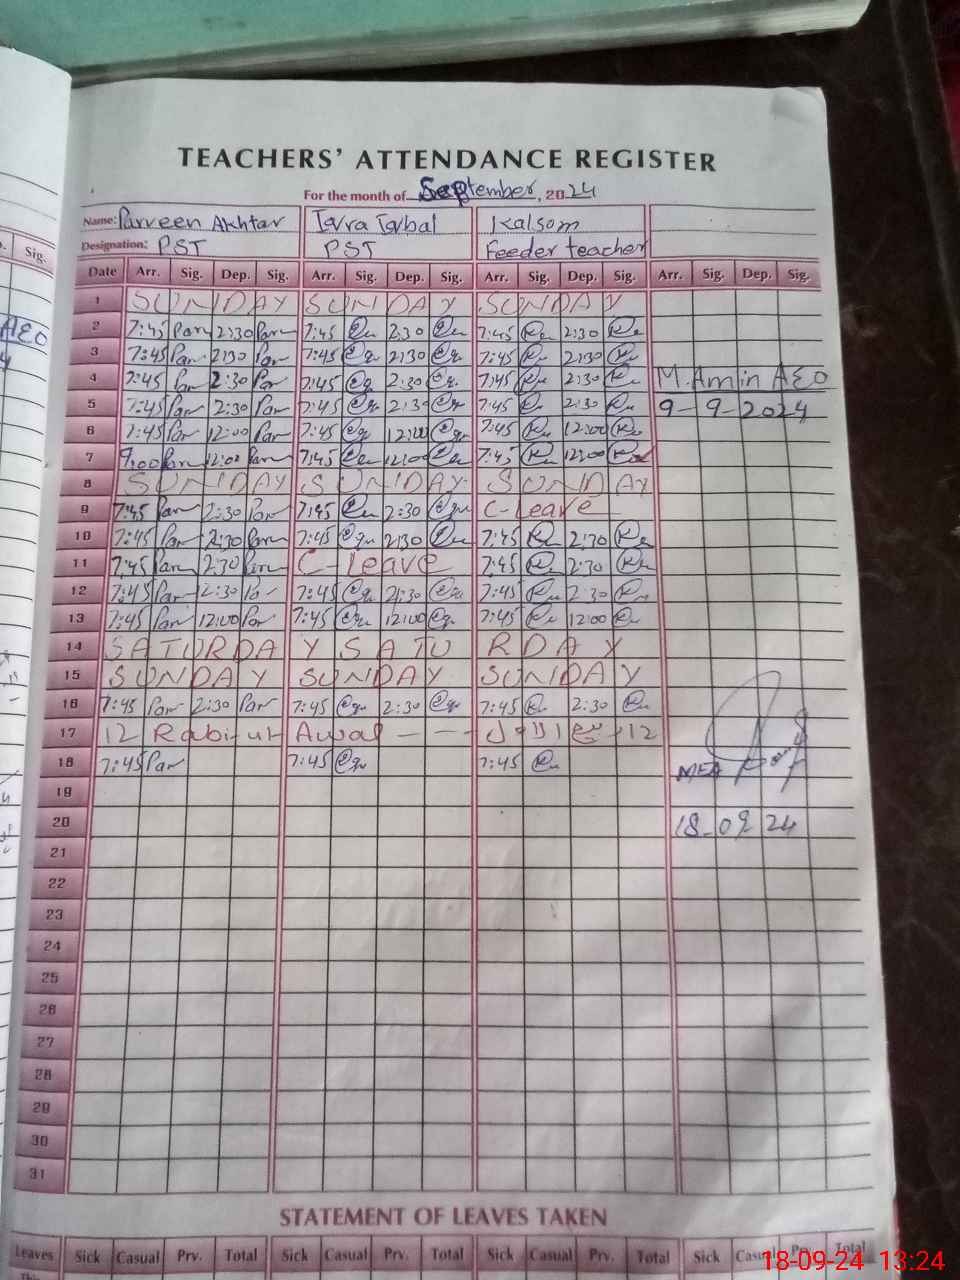 TEACHERS' ATTENDANCE REGISTER
For the month of September, 2024
Name: Parveen Akhtar Iqra Iqbal Kalsom
Designation: PST PST Feeder teacher
Date Arr. Sig. Dep. Sig. Arr. Sig. Dep. Sig. Arr. Sig. Dep. Sig. Arr. Sig. Dep. Sig.
1 SUNDAY SUNDAY SUNDAY
2 7:45 Par 2:30 Par 7:45 2:30 7:45 2:30
3 7:45 Par 2:30 Par 7:45 2:30 7:45 2:30
4 7:45 Par 2:30 Par 7:45 2:30 7:45 2:30 M. Amin AEO
5 7:45 Par 2:30 Par 7:45 2:30 7:45 2:30 9-9-2024
6 7:45 Par 12:00 Par 7:45 12:00 7:45 12:00
7 9:00 Par 12:00 Par 7:45 12:00 7:45 12:00
8 SUNDAY SUNDAY SUNDAY
9 7:45 Par 2:30 Par 7:45 2:30 C-Leave
10 7:45 Par 2:30 Par 7:45 2:30 7:45 2:30
11 7:45 Par 2:30 Par C-Leave 7:45 2:30
12 7:45 Par 2:30 Par 7:45 2:30 7:45 2:30
13 7:45 Par 12:00 Par 7:45 12:00 7:45 12:00
14 SATURDAY SATURDAY
15 SUNDAY SUNDAY SUNDAY
16 7:45 Par 2:30 Par 7:45 2:30 7:45 2:30
17 12 Rabi-ul Awal - - - 12 ربیع الاول
18 7:45 Par 7:45 7:45 MEA
19
20 18-09-24
21
22
23
24
25
26
27
28
29
30
31
STATEMENT OF LEAVES TAKEN
Leaves Sick Casual Prv. Total Sick Casual Prv. Total Sick Casual Prv. Total Sick Casual Prv. Total
18-09-24 13:24
Sig.
AEO